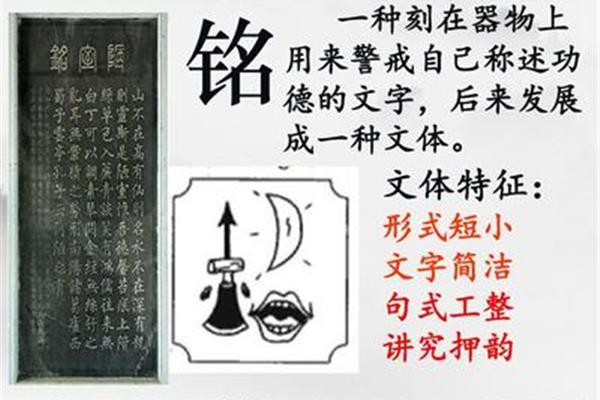 陋室銘
山不在高有仙則名水不在深有龍
則靈斯是陋室惟吾德馨苔痕上階
綠草色入簾青談笑有鴻儒往來無
白丁可以調素琴閱金經無絲竹之
亂耳無案牘之勞形南陽諸葛廬西
蜀子雲亭孔子云何陋之有
铭
一种刻在器物上
用来警戒自己称述功
德的文字，后来发展
成一种文体。
文体特征：
形式短小
文字简洁
句式工整
讲究押韵